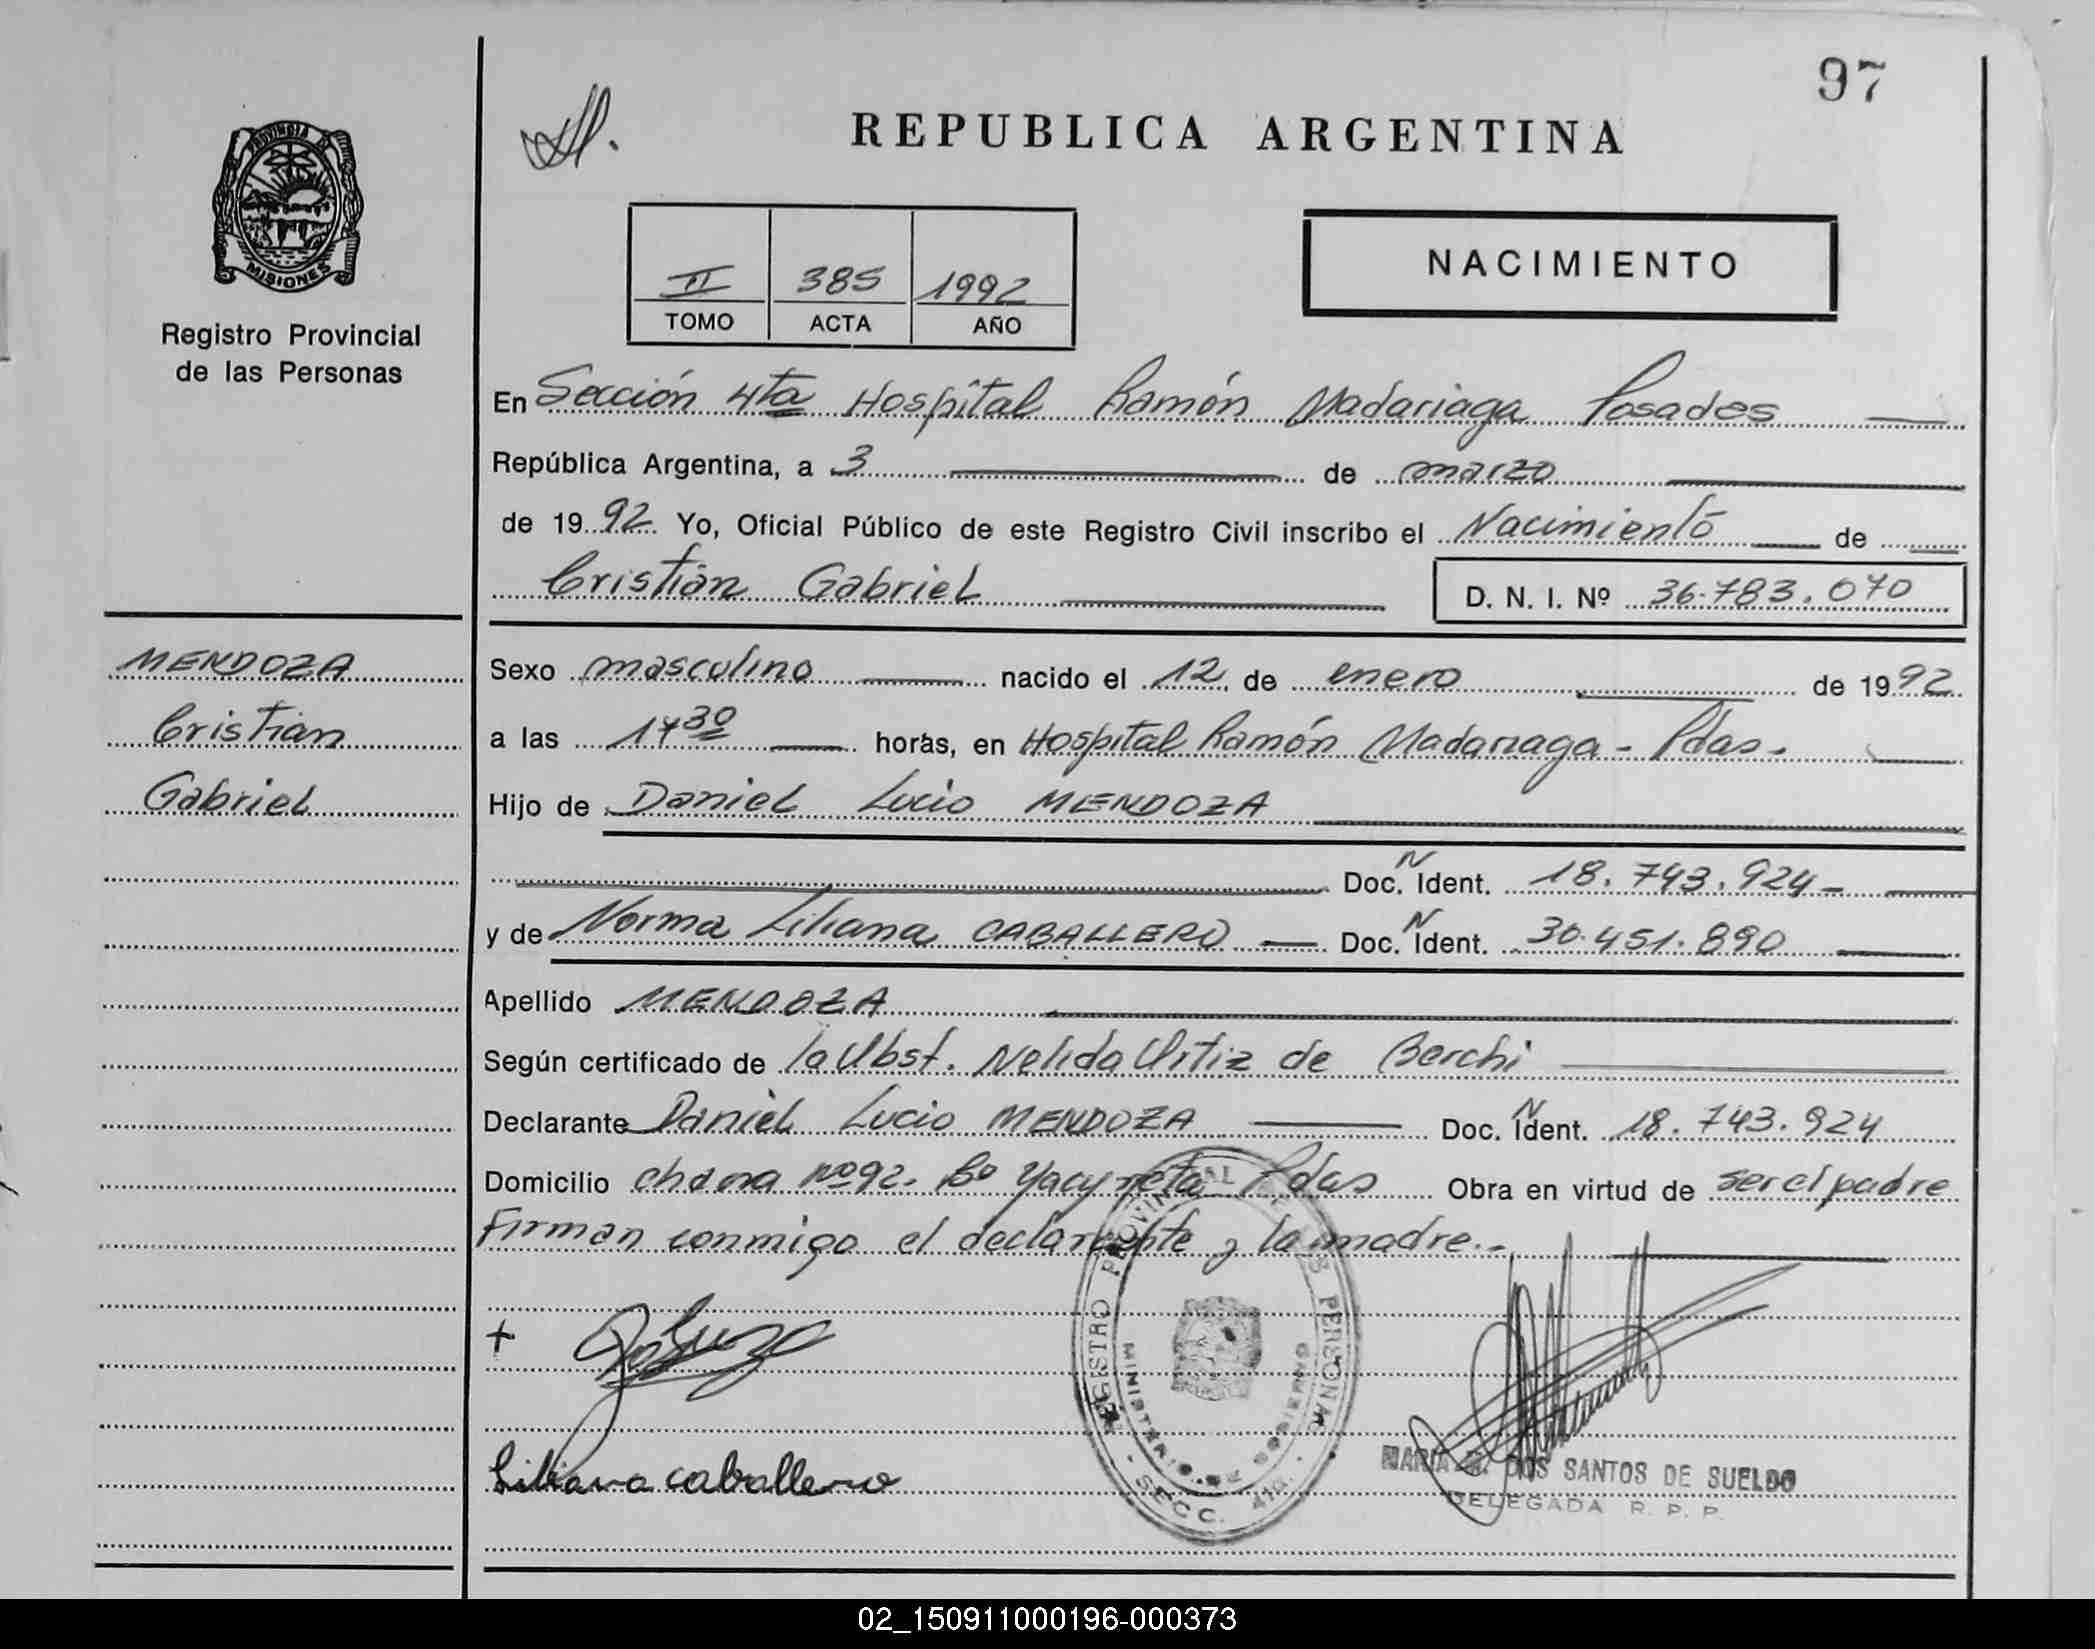 97
REPUBLICA ARGENTINA
PROVINCIA DE
MISIONES
Registro Provincial
de las Personas
II 385 1992
TOMO ACTA AÑO
NACIMIENTO
En Sección 4ta Hospital Ramón Madariaga Posadas
República Argentina, a 3 de marzo
de 1992 Yo, Oficial Público de este Registro Civil inscribo el Nacimiento de
Cristian Gabriel D. N. I. Nº 36.783.070
MENDOZA
Cristian
Gabriel
Sexo masculino nacido el 12 de enero de 1992
a las 17 30 horas, en Hospital Ramón Madariaga - Pdas.
Hijo de Daniel Lucio MENDOZA
Doc. N Ident. 18.743.924
y de Norma Liliana CABALLERO Doc. N Ident. 30.451.890
Apellido MENDOZA
Según certificado de la Obst. Nelida Ortiz de Berchi
Declarante Daniel Lucio MENDOZA Doc. N Ident. 18.743.924
Domicilio chacra nº 92. Bº Yacyreta Pdas Obra en virtud de ser el padre
Firman conmigo el declarante y la madre.-
REGISTRO PROVINCIAL DE LAS PERSONAS
MINISTERIO DE GOBIERNO
- SECC. 4ta. -
Liliana caballero
MARIA DOS SANTOS DE SUELDO
DELEGADA R. P. P.
02_150911000196-000373